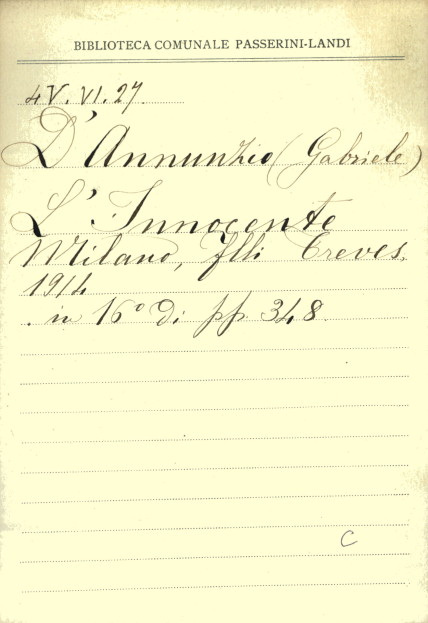 BIBLIOTECA COMUNALE PASSERINI-LANDI
4V. VI. 27
D'Annunzio (Gabriele)
L'Innocente
Milano, Flli Treves.
1914
in 16º di pp 348
C